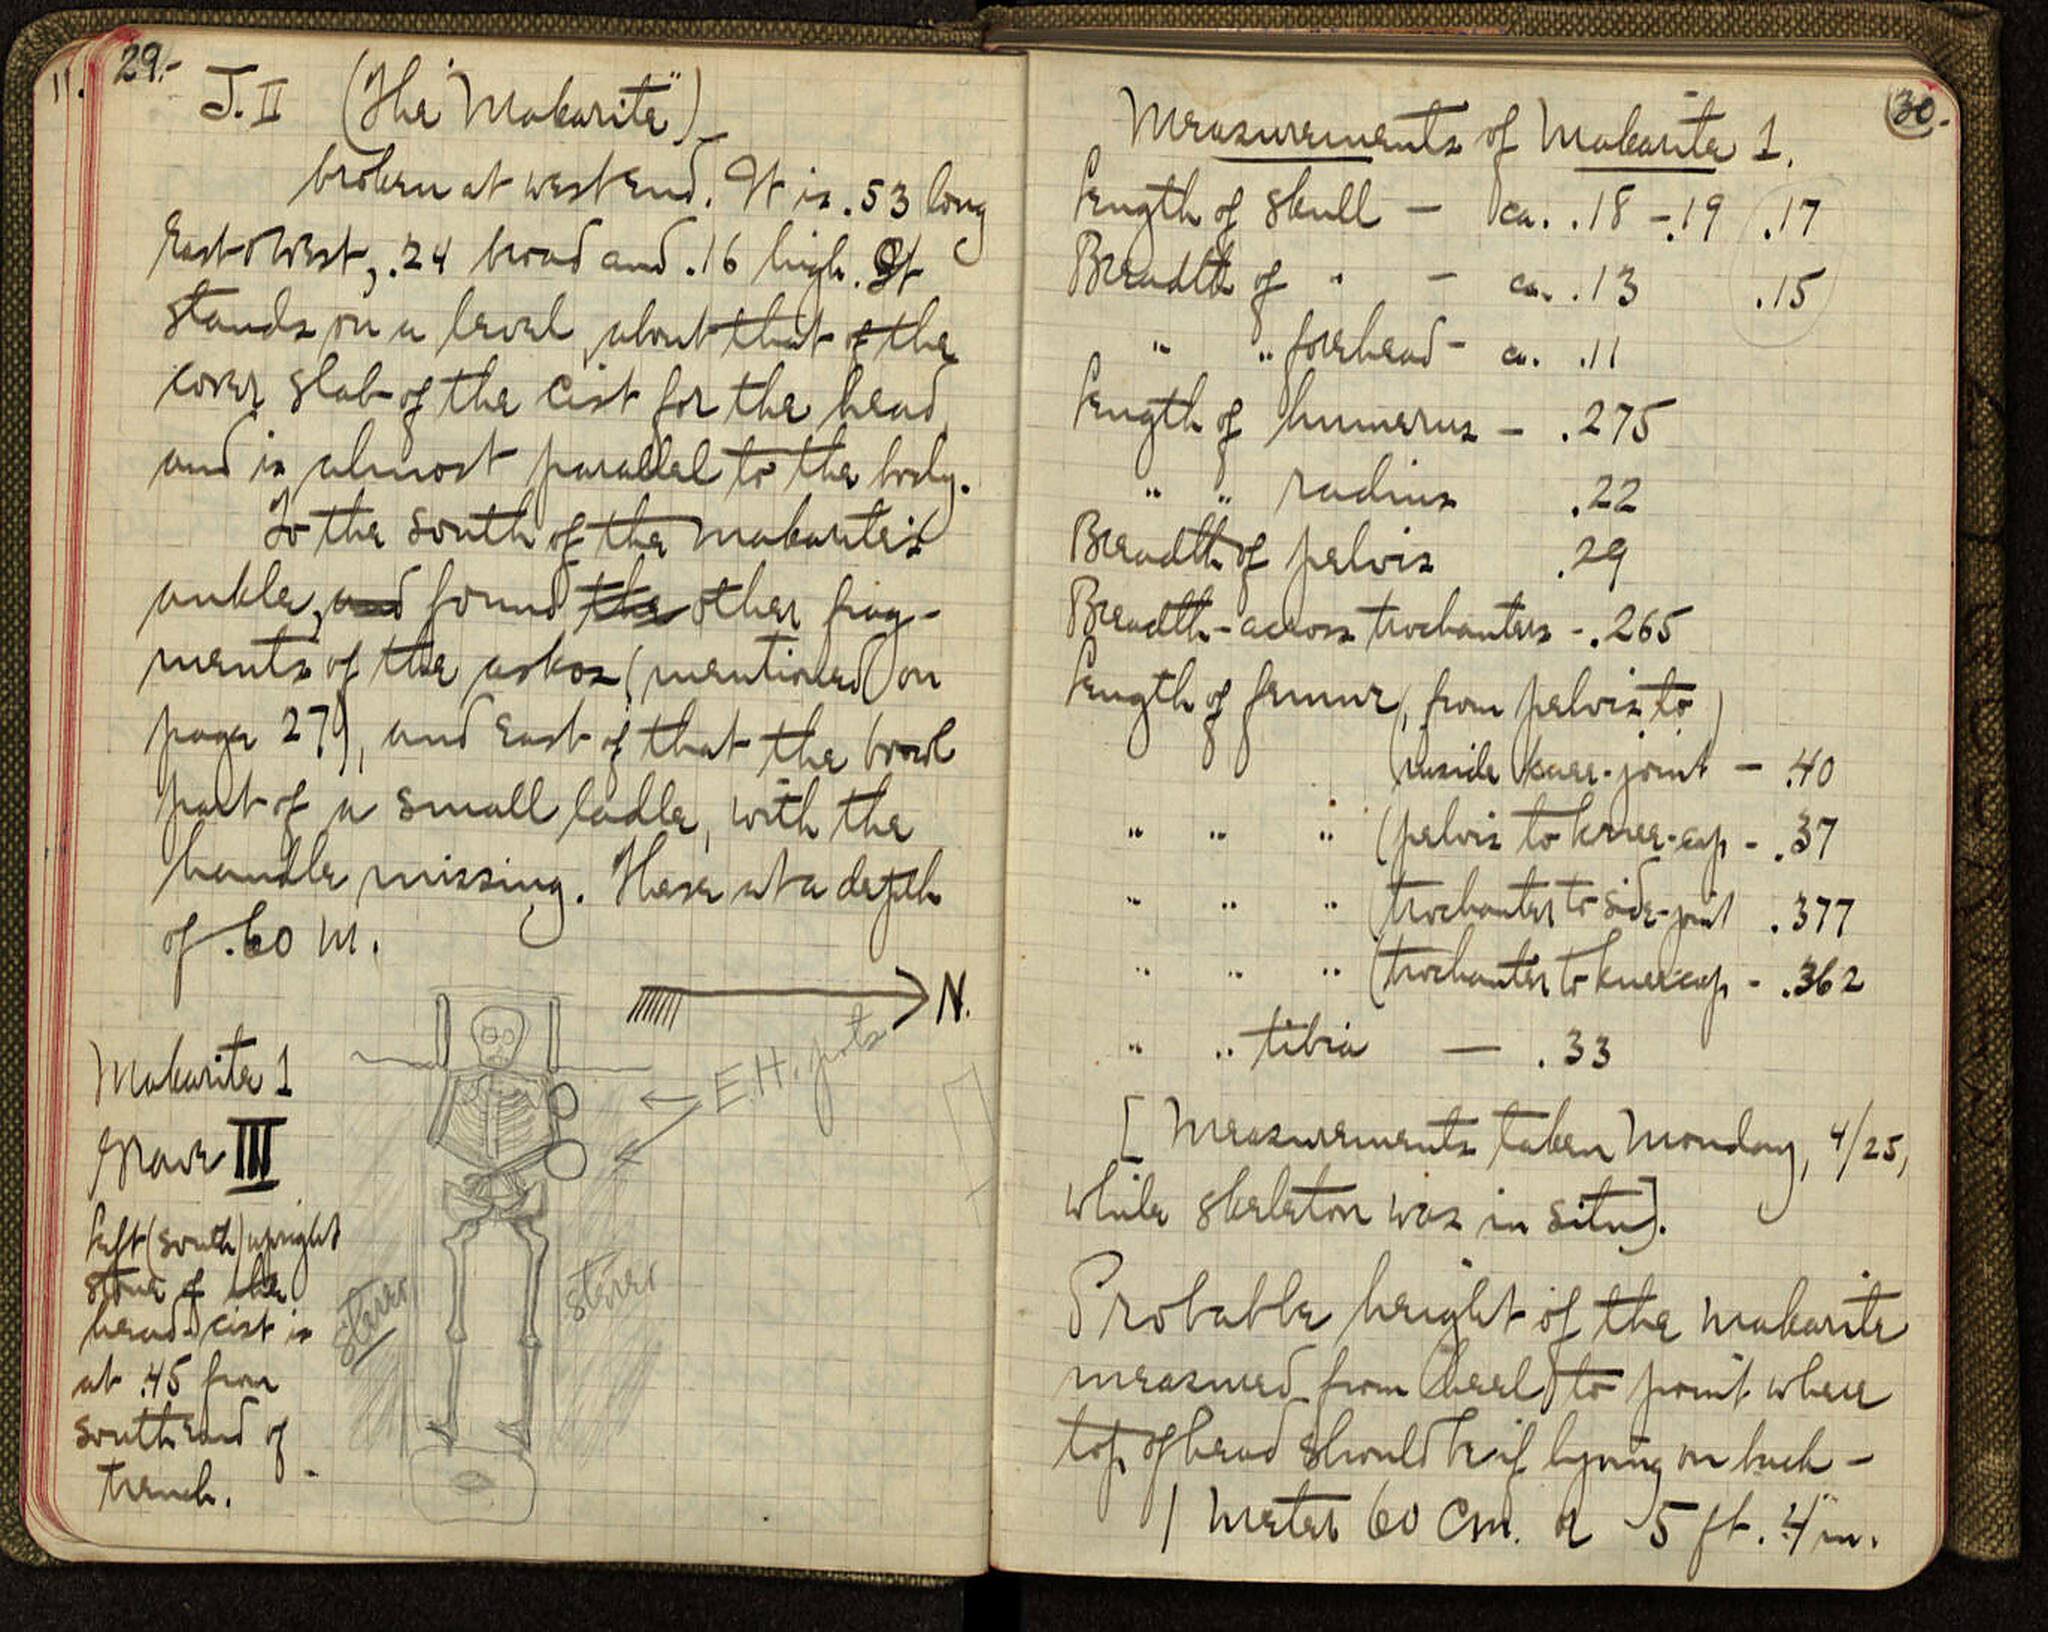 11. 29.-
J. II (The "Makarite")-
broken at west end. It is .53 long
East & West, .24 broad and .16 high. It
stands on a level about that of the
cover slab of the cist for the head
and is almost parallel to the body.
To the south of the makarite's
ankle, and found the other frag-
ments of the askos (mentioned on
page 27), and east of that the bowl
part of a small ladle, with the
handle missing. These at a depth
of .60 m.
N.
E.H. pots
Makarite 1
Grave III
Left (south) upright
stone of the
head-cist is
at .45 from
south end of
trench.
stones
stones
30.
Measurements of Makarite 1.
Length of skull - ca. .18 - .19 .17
Breadth of " - ca. .13 .15
" " forehead - ca. .11
Length of humerus - .275
" " radius .22
Breadth of pelvis .29
Breadth - across trochanters - .265
Length of femur (from pelvis to)
(inside knee-joint - .40
" " " (pelvis to knee-cap - .37
" " " (trochanter to side-joint .377
" " " (trochanter to kneecap - .362
" " tibia - .33
[Measurements taken Monday, 4/25,
while skeleton was in situ].
Probable height of the makarite
measured from heel to point where
top of head should be if lying on back -
1 meter 60 cm. or 5 ft. 4 in.